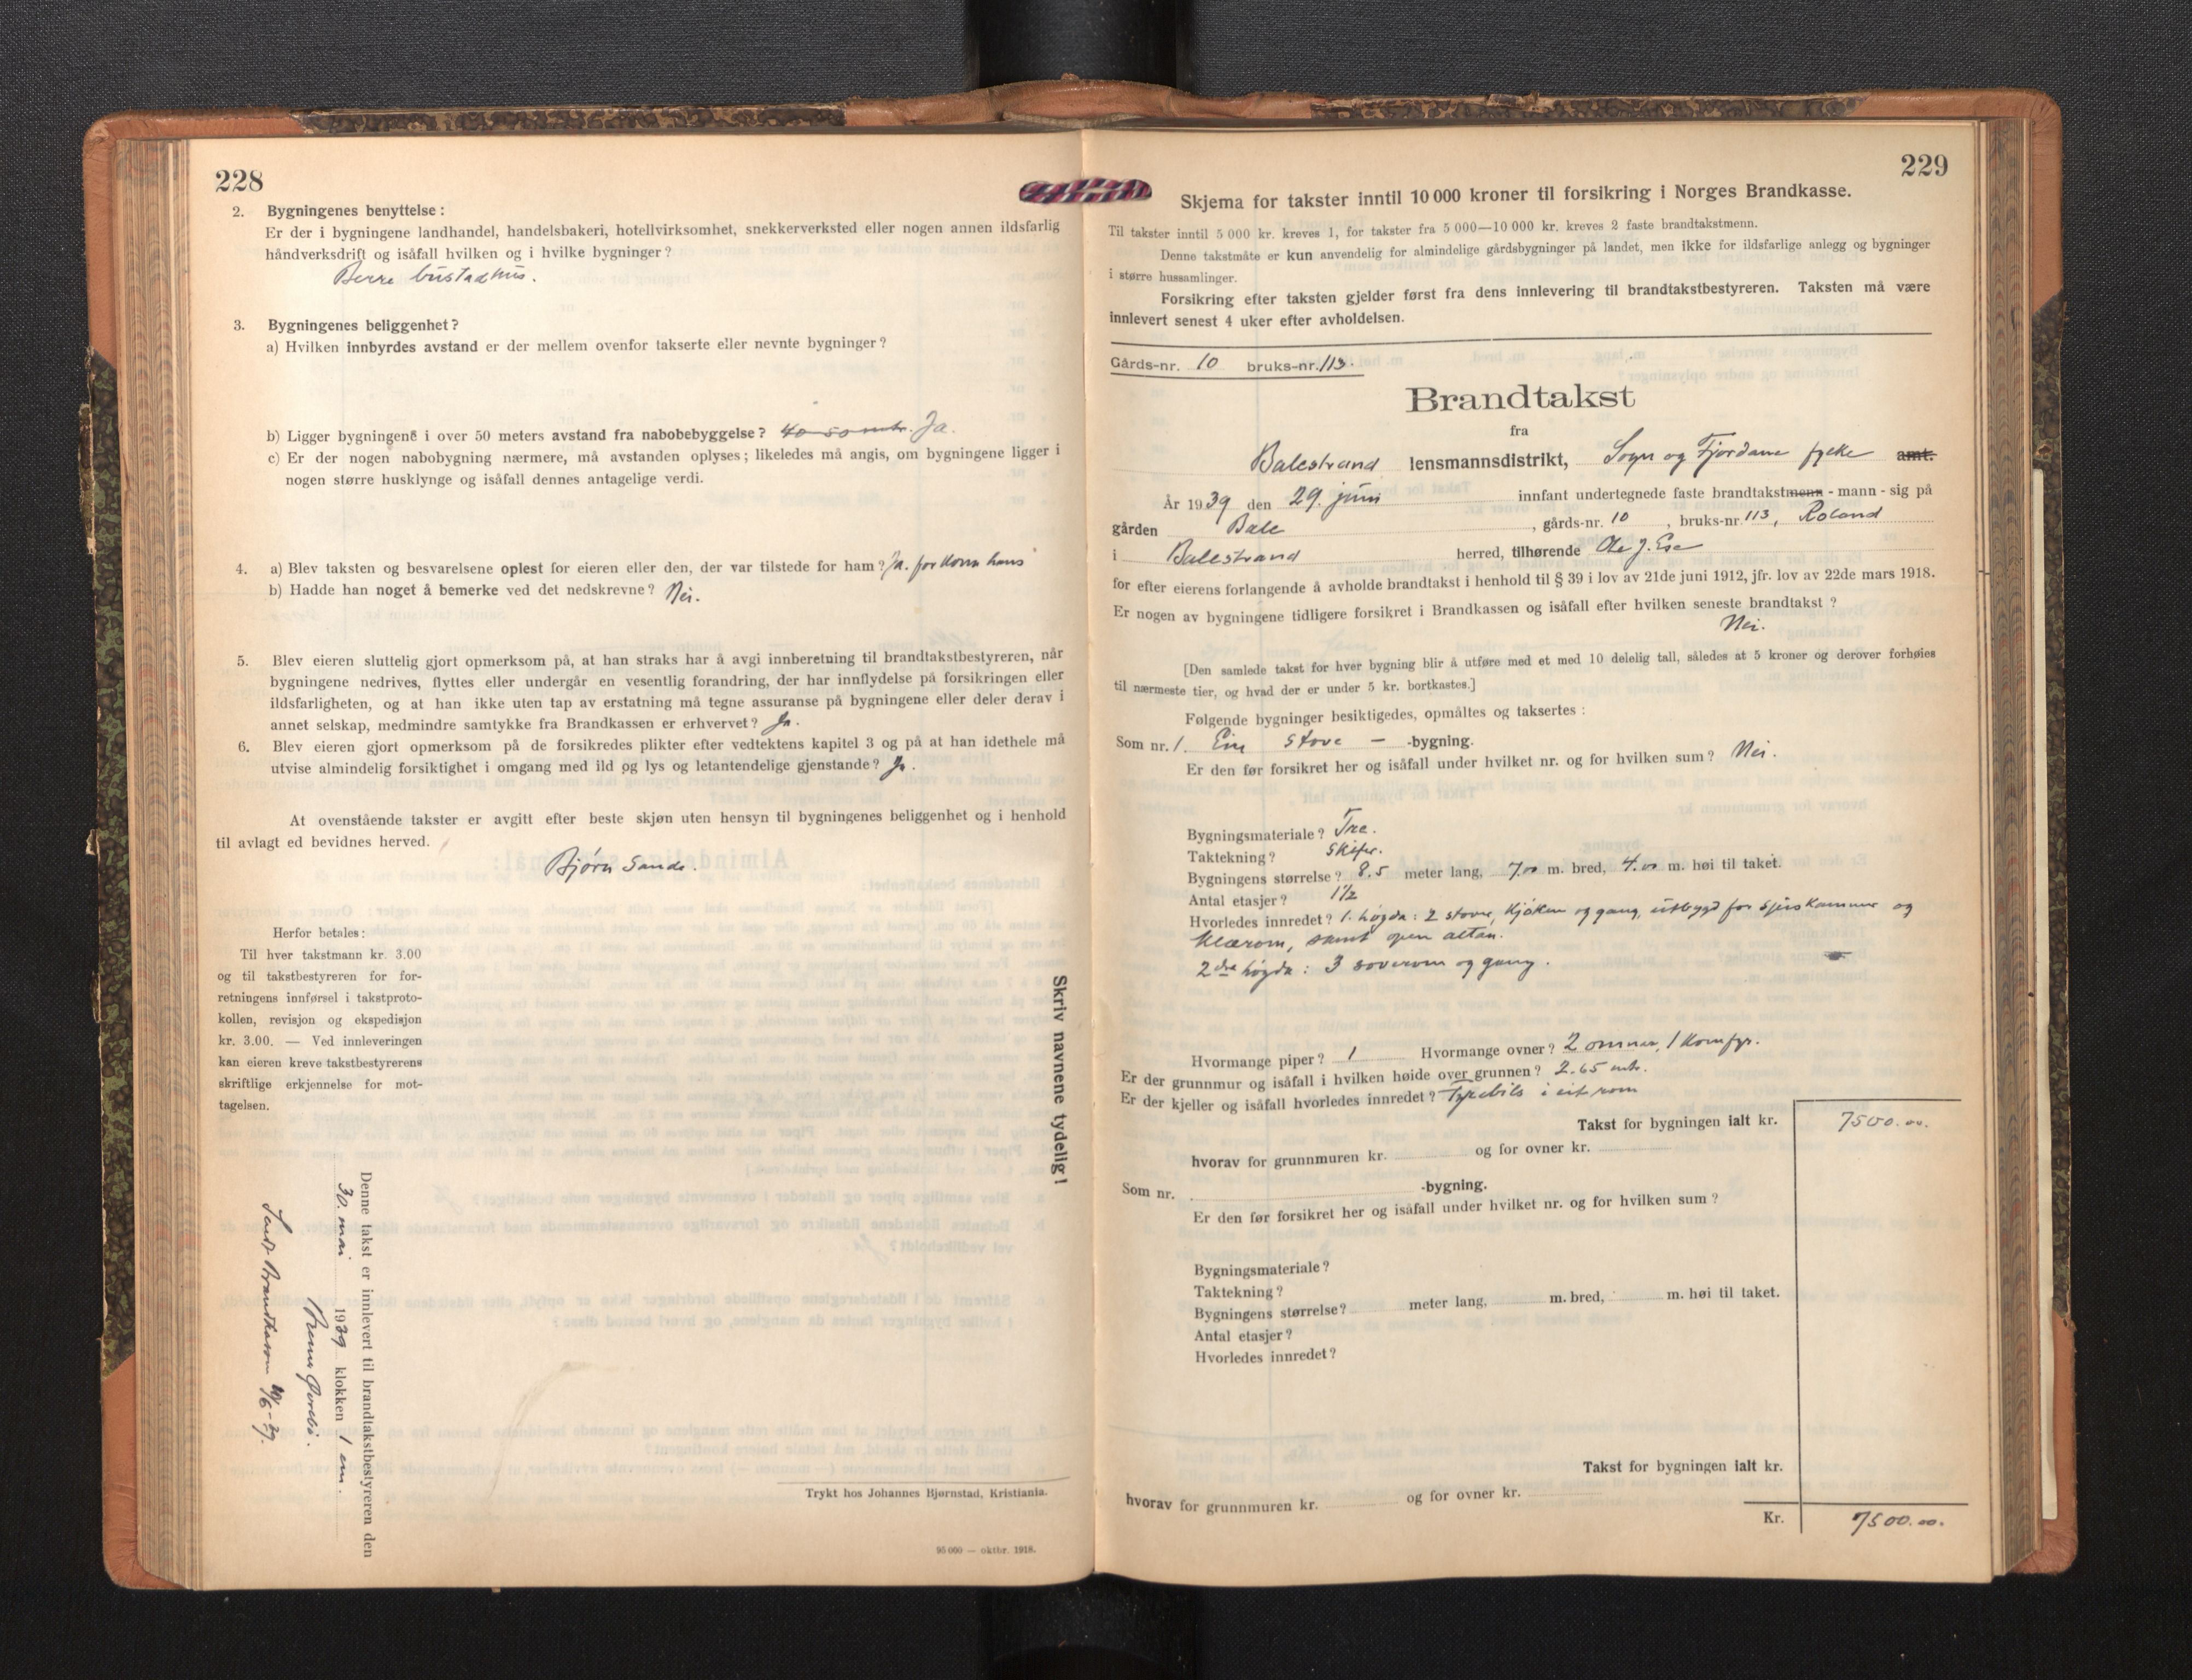 228
2. Bygningenes benyttelse :
Er der i bygningene landhandel, handelsbakeri, hotellvirksomhet, snekkerverksted eller nogen annen ildsfarlig
håndverksdrift og isåfall hvilken og i hvilke bygninger ?
Berre bustadhus.
3. Bygningenes beliggenhet ?
a) Hvilken innbyrdes avstand er der mellem ovenfor takserte eller nevnte bygninger ?
b) Ligger bygningene i over 50 meters avstand fra nabobebyggelse ? 40-50 mtr. Ja.
c) Er der nogen nabobygning nærmere, må avstanden oplyses ; likeledes må angis, om bygningene ligger i
nogen større husklynge og isåfall dennes antagelige verdi.
4. a) Blev taksten og besvarelsene oplest for eieren eller den, der var tilstede for ham ? Ja. for kona hans
b) Hadde han noget å bemerke ved det nedskrevne ? Nei.
5. Blev eieren sluttelig gjort opmerksom på, at han straks har å avgi innberetning til brandtakstbestyreren, når
bygningene nedrives, flyttes eller undergår en vesentlig forandring, der har innflydelse på forsikringen eller
ildsfarligheten, og at han ikke uten tap av erstatning må tegne assuranse på bygningene eller deler derav i
annet selskap, medmindre samtykke fra Brandkassen er erhvervet ? Ja.
6. Blev eieren gjort opmerksom på de forsikredes plikter efter vedtektens kapitel 3 og på at han idethele må
utvise almindelig forsiktighet i omgang med ild og lys og letantendelige gjenstande ? Ja.
At ovenstående takster er avgitt efter beste skjøn uten hensyn til bygningenes beliggenhet og i henhold
til avlagt ed bevidnes herved.
Bjørn Sande.
Herfor betales :
Til hver takstmann kr. 3.00
og til takstbestyreren for for-
retningens innførsel i takstproto-
kollen, revisjon og ekspedisjon
kr. 3.00. — Ved innleveringen
kan eieren kreve takstbestyrerens
skriftlige erkjennelse for mot-
tagelsen.
Skriv navnene tydelig !
Denne takst er innlevert til brandtakstbestyreren den
30. mai 1939 klokken 1 em.
Sendt Brandkassen
Trykt hos Johannes Bjørnstad, Kristiania.
95 000 — oktbr. 1918.
229
Skjema for takster inntil 10 000 kroner til forsikring i Norges Brandkasse.
Til takster inntil 5 000 kr. kreves 1, for takster fra 5 000—10 000 kr. kreves 2 faste brandtakstmenn.
Denne takstmåte er kun anvendelig for almindelige gårdsbygninger på landet, men ikke for ildsfarlige anlegg og bygninger
i større hussamlinger.
Forsikring efter taksten gjelder først fra dens innlevering til brandtakstbestyreren. Taksten må være
innlevert senest 4 uker efter avholdelsen.
Gårds-nr. 10 bruks-nr. 113.
Brandtakst
fra
Balestrand lensmannsdistrikt, Sogn og Fjordane fylke amt.
År 1939 den 29. juni innfant undertegnede faste brandtakstmenn - mann - sig på
gården Bale , gårds-nr. 10 , bruks-nr 113, Roland
i Balestrand herred, tilhørende Ole J. Ese
for efter eierens forlangende å avholde brandtakst i henhold til § 39 i lov av 21de juni 1912, jfr. lov av 22de mars 1918.
Er nogen av bygningene tidligere forsikret i Brandkassen og isåfall efter hvilken seneste brandtakst ?
Nei.
[Den samlede takst for hver bygning blir å utføre med et med 10 delelig tall, således at 5 kroner og derover forhøies
til nærmeste tier, og hvad der er under 5 kr. bortkastes.]
Følgende bygninger besiktigedes, opmåltes og taksertes :
Som nr. 1. Ein stove — -bygning.
Er den før forsikret her og isåfall under hvilket nr. og for hvilken sum ? Nei.
Bygningsmateriale ? Tre.
Taktekning ? Skifer.
Bygningens størrelse ? 8.5 meter lang, 7.00 m. bred, 4.00 m. høi til taket.
Antal etasjer ? 1½
Hvorledes innredet ? 1. høgda : 2 stover, kjøken og gang, utbygd for spiskammer og
klærom, samt open altan.
2dre høgda : 3 soverom og gang.
Hvormange piper ? 1 Hvormange ovner ? 2 omnar, 1 komfyr.
Er der grunnmur og isåfall i hvilken høide over grunnen ? 2.65 mtr.
Er der kjeller og isåfall hvorledes innredet ? i eit rom
Takst for bygningen ialt kr. 7500.00.
hvorav for grunnmuren kr. og for ovner kr.
Som nr. -bygning.
Er den før forsikret her og isåfall under hvilket nr. og for hvilken sum ?
Bygningsmateriale ?
Taktekning ?
Bygningens størrelse ? meter lang, m. bred, m. høi til taket.
Antal etasjer ?
Hvorledes innredet ?
Takst for bygningen ialt kr.
hvorav for grunnmuren kr. og for ovner kr.
Kr. 7500.00.